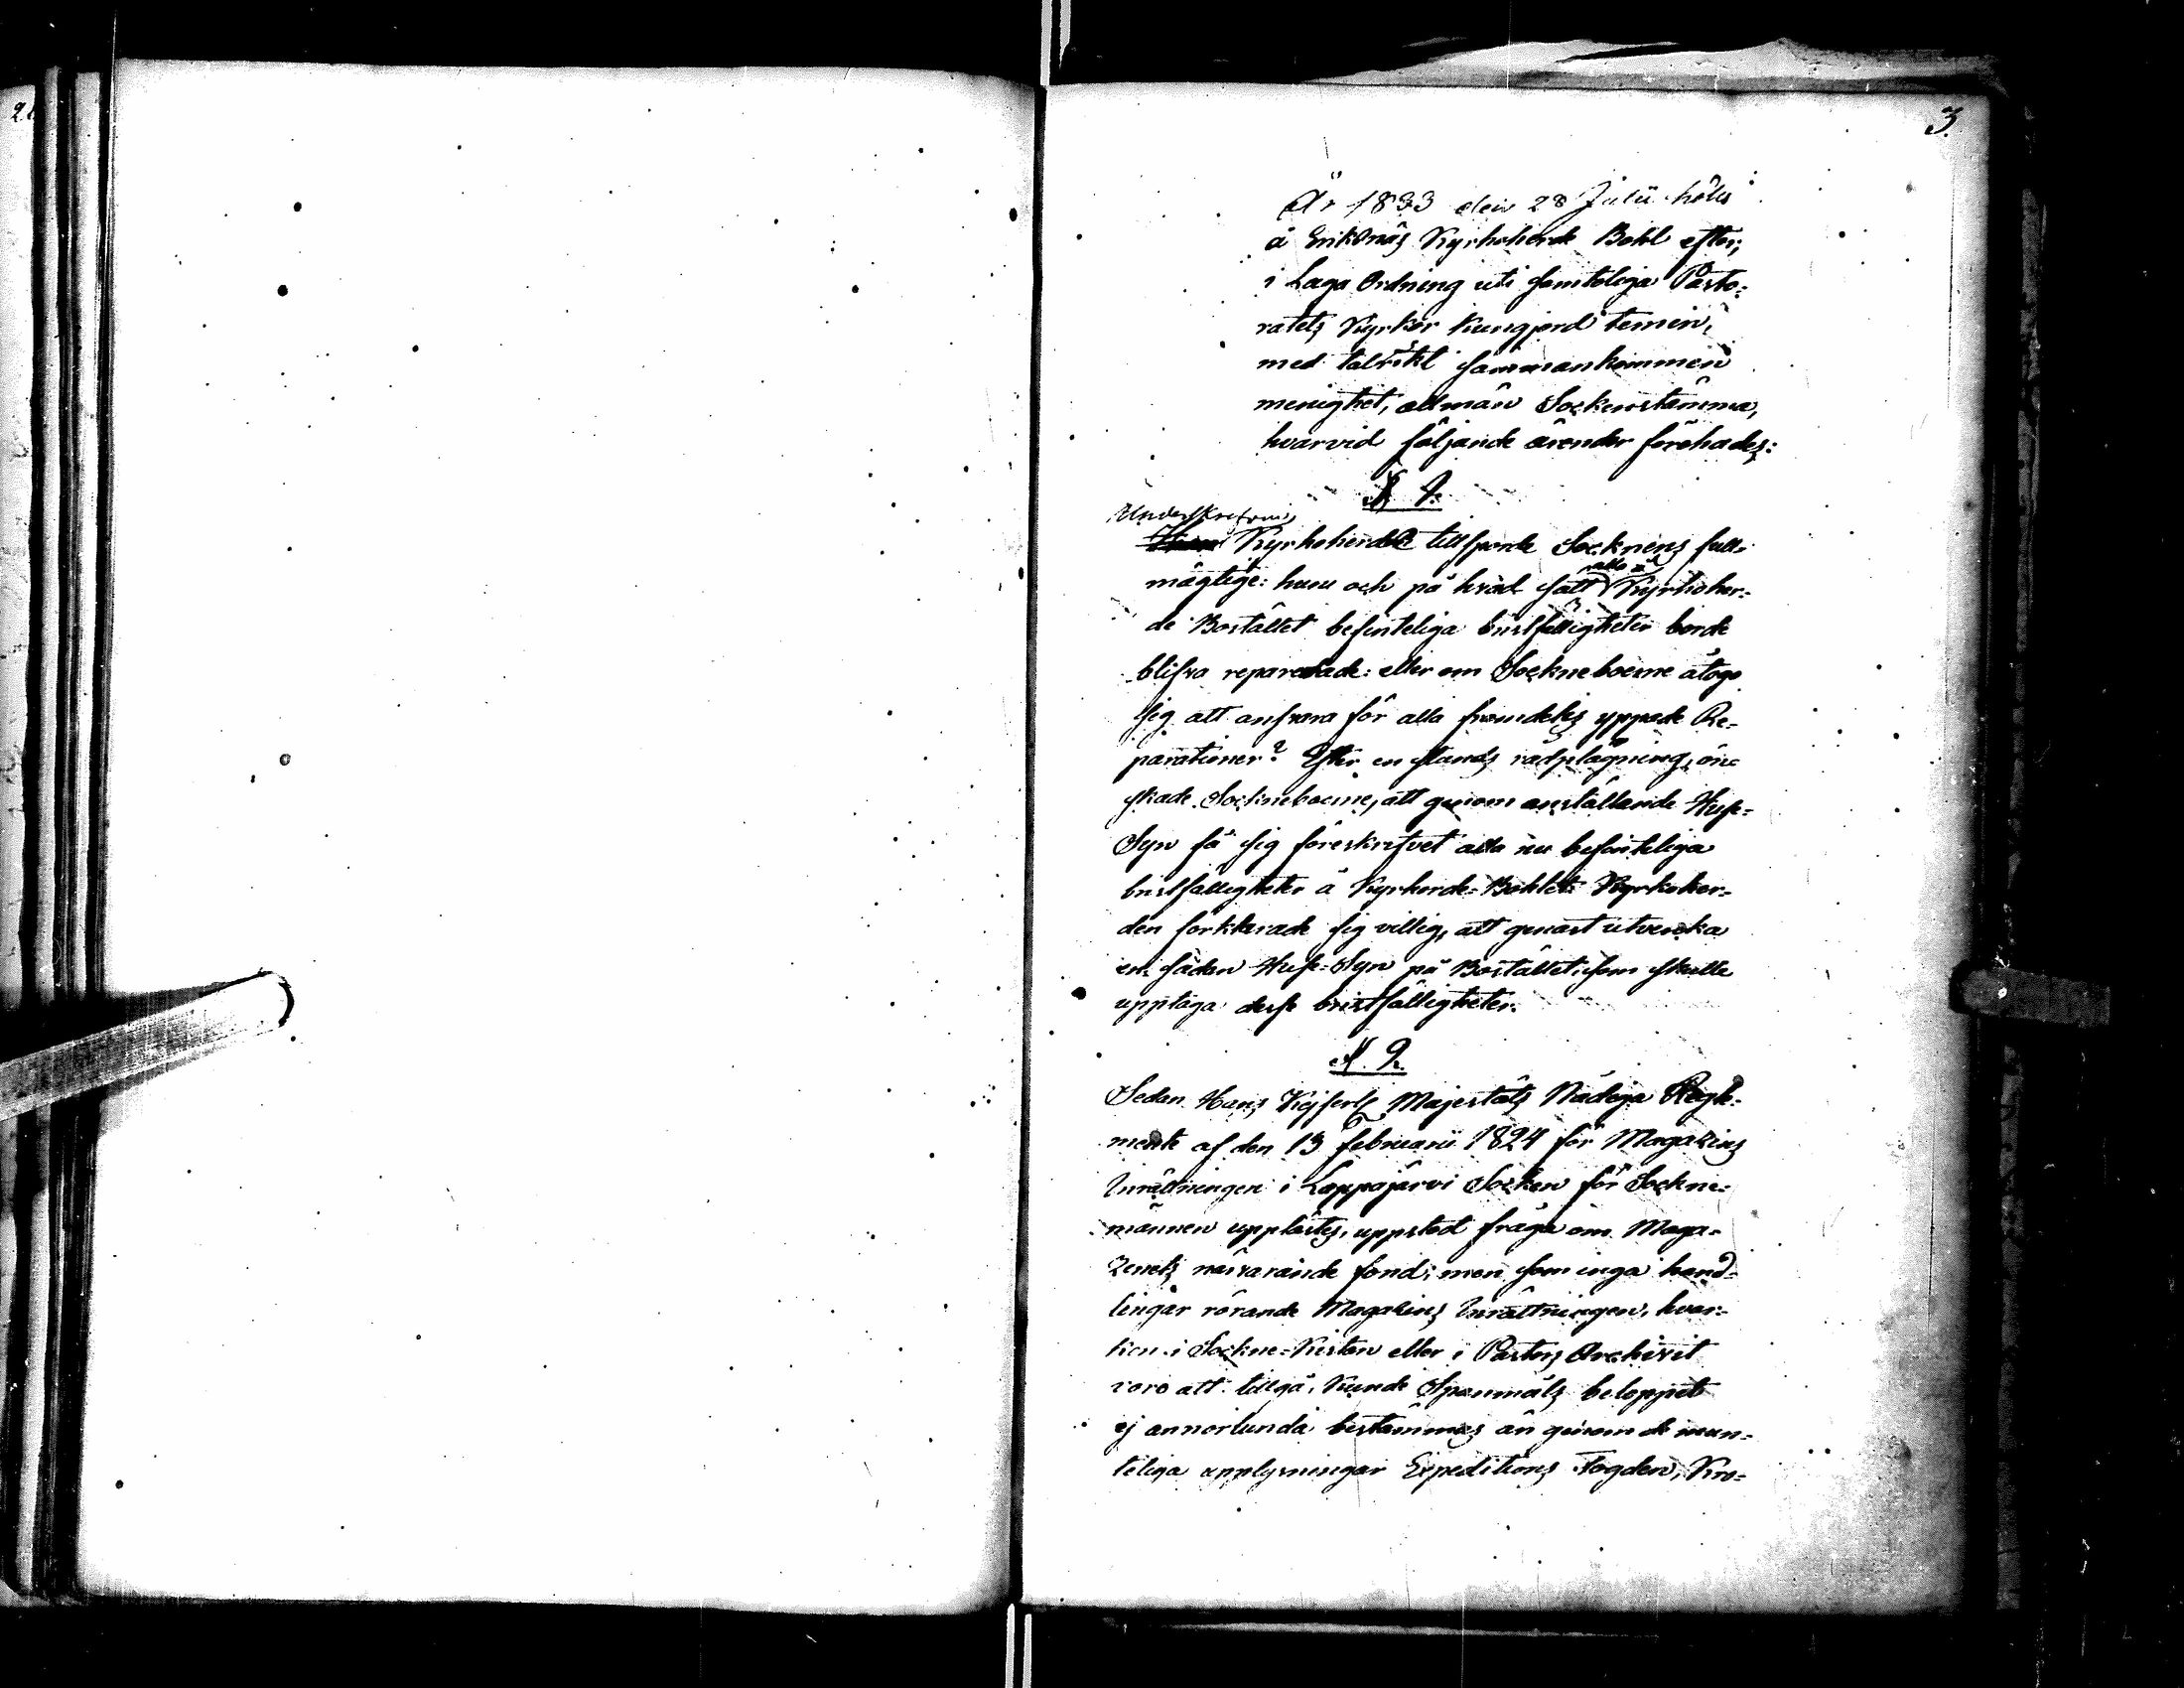 3.
År 1833 den 28 Julii hölls
å Eriksnäs Kyrkoherde Bohl efter,
i Laga Ordning uti samteliga Pasto-
ratets Kyrkor kungjord termin,
med talrikt sammankommen
menighet, allmän Sockenstämma,
hvarvid följande ärender förehades:
§ 1.
Underskrefven
Kyrkoherde tillsporde Socknens full-
mägtige: huru och på hvad sätt alla å Kyrkoher-
de Bostället befinteliga bristfälligheter borde
blifva reparerade: eller om Sockneboerne åtogo
sig att ansvara för alla framdeles yppade Re-
parationer? Efter en stunds rådplägning, ön-
skade Sockneboerne, att genom anställande Huse-
Syn få sig föreskrifvet alla nu befinteliga
bristfälligheter å Kyrkorde-Bohlet. Kyrkoher-
den förklarade sig villig, att genast utverka
en sådan Huse-Syn på Bostället, som skulle
upptaga dess bristfälligheter.
§ 2.
Sedan Hans Kejserl. Majestäts Nådiga Regle-
mente af den 13 Februarii 1824 för Magazins
Inrättningen i Lappajärvi Socken för Sockne-
männen upplästes, uppstod fråga om Maga-
zinets närvarande fond; men som inga hand-
lingar rörande Magazins Inrättningen, hvar-
ken i Sockne-Kistan eller i Pastors Archivet
voro att tillgå, kunde Spanmåls beloppet
ej annorlunda bestämmas än genom de mun-
teliga upplysningar Expeditions Fogden, Kro-